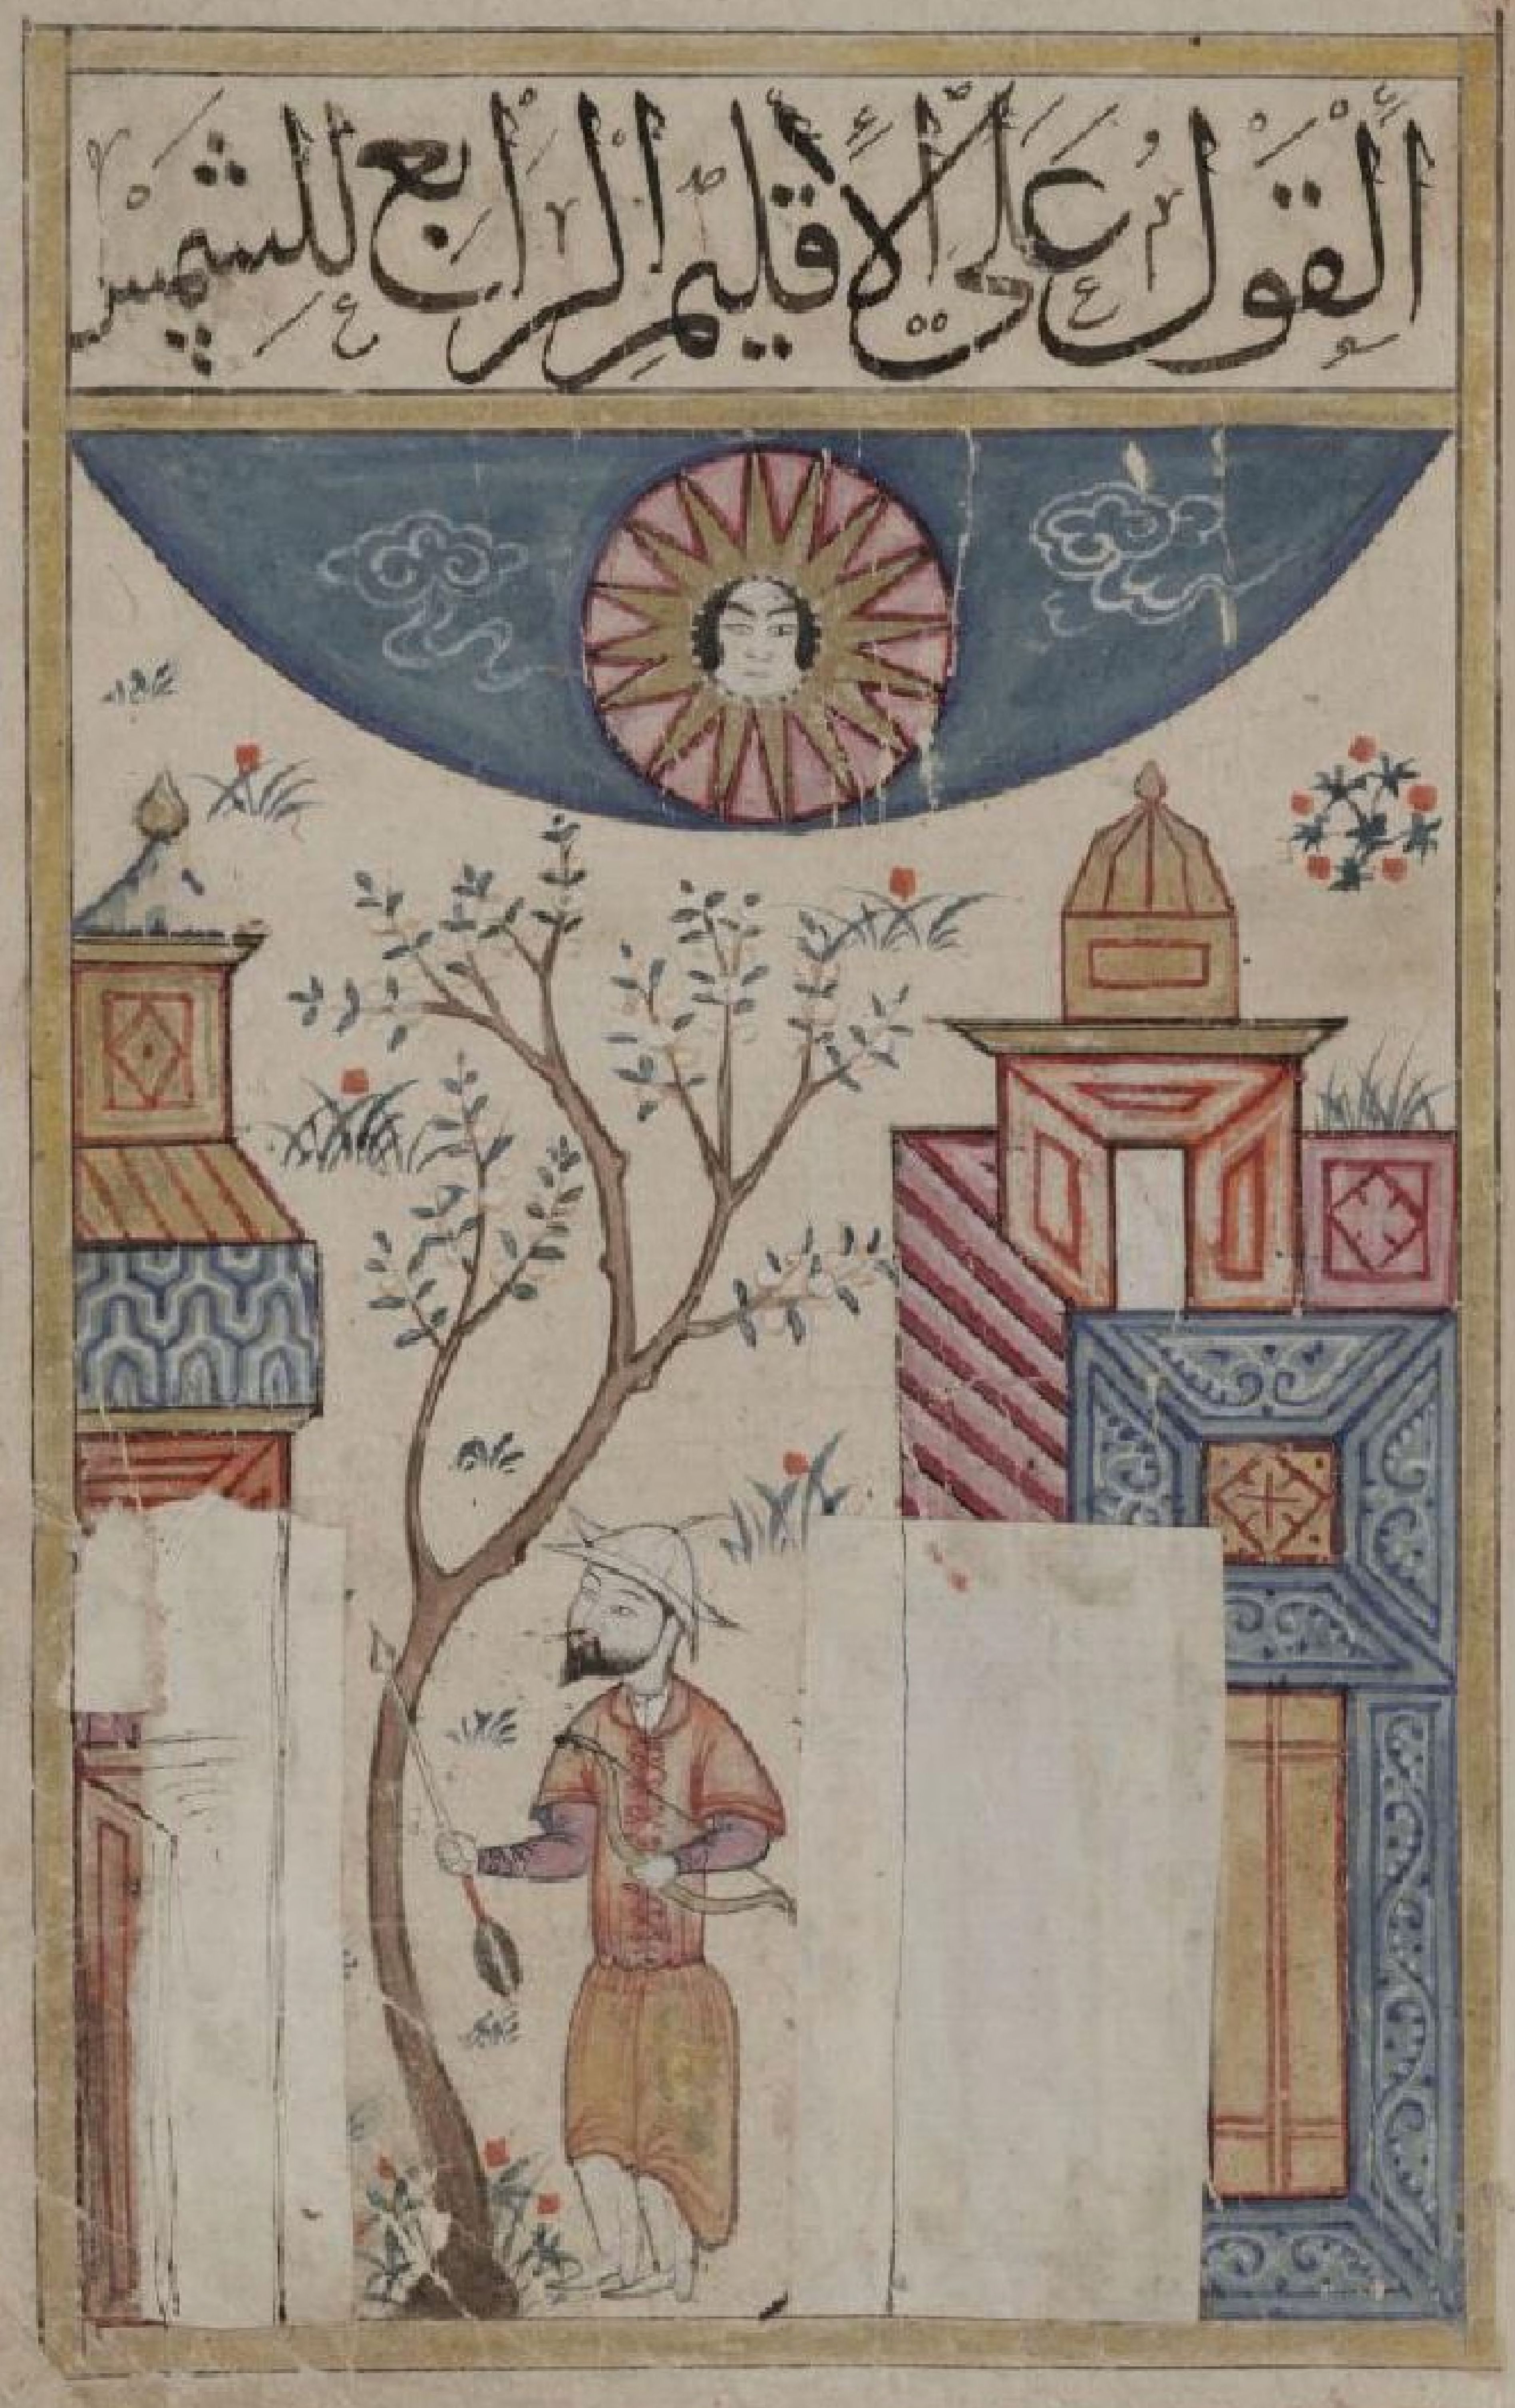 القول على الاقليم الرابع للشمس